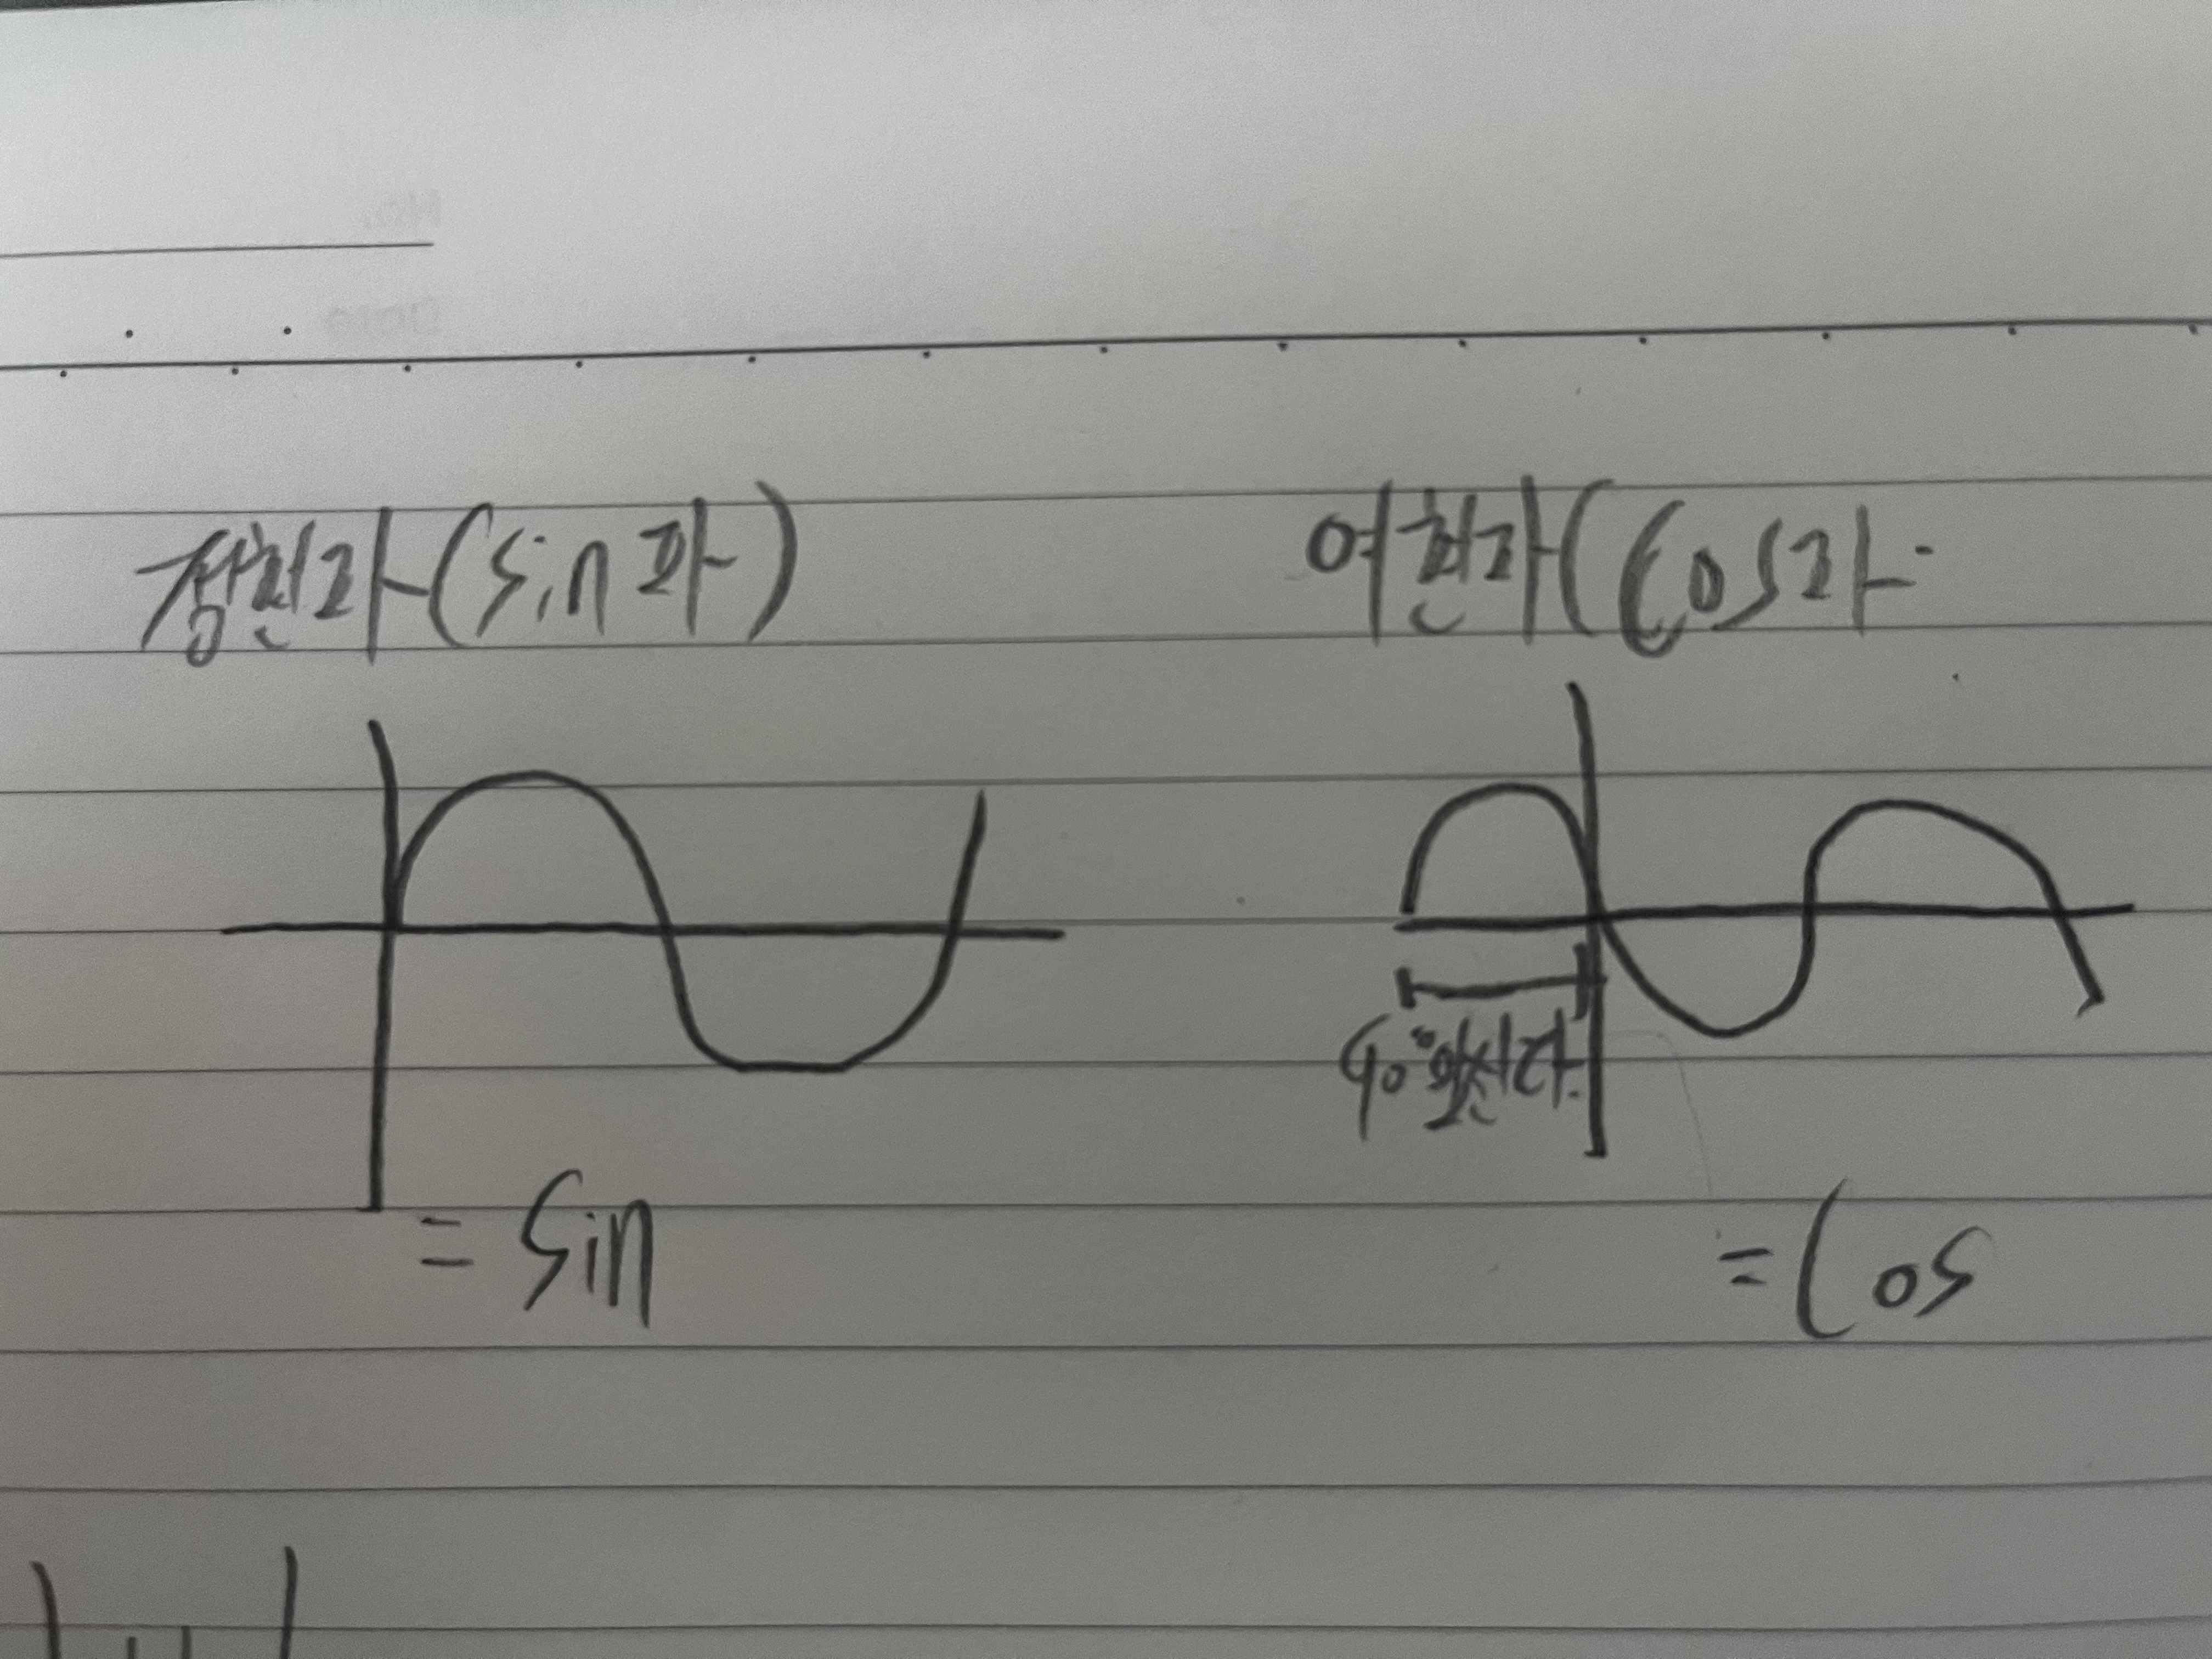 정현파(sin파)
여현파(cos파
90° 앞선다.
= sin
= cos